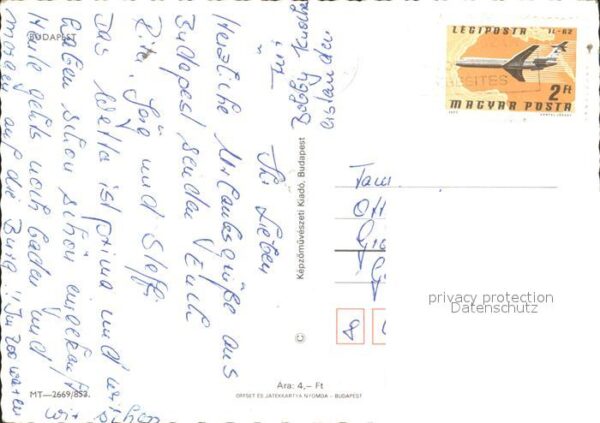 BUDAPEST
Ihr Lieben
Herzliche Urlaubsgrüße aus
Budapest senden Euch
Rita, Jörg und Steffi
Das Wetter ist prima und wir
haben schon schön eingekauft
Heute gehts noch baden und wir
morgen auf die Burg Im Zoo waren
schon
MT—2669/853.
Bobby
©
Képzőművészeti Kiadó, Budapest
Ára: 4,– Ft
OFFSET ÉS JÁTÉKKÁRTYA NYOMDA – BUDAPEST
LÉGIPOSTA IL-62
2 Ft
MAGYAR POSTA
Fam.
Ott
8
privacy protection
Datenschutz